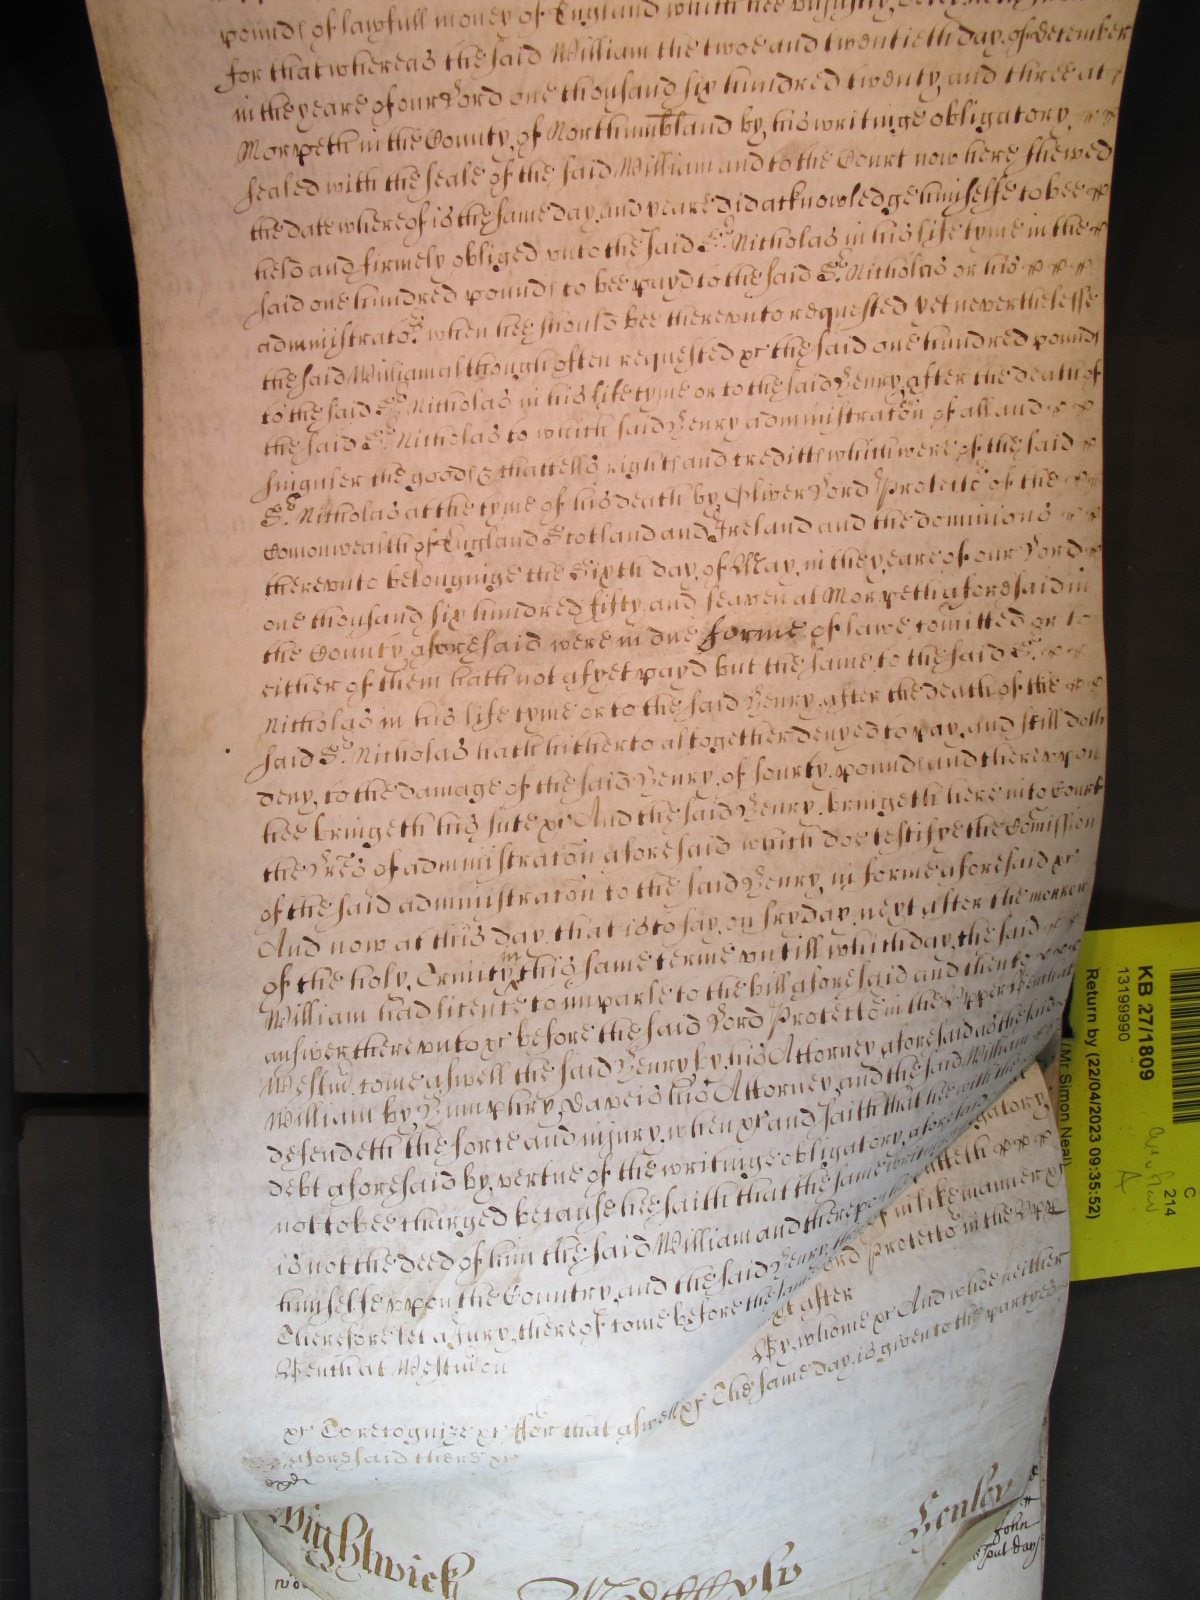 pounds of lawfull money of England which hee
for that whereas the said William the twoe and twentieth day of December
in the yeare of our Lord one thousand six hundred twenty and three at
Morpeth in the County of Northumbland by his writinge obligatory
sealed with the seale of the said William and to the Court now here shewed
the date whereof is the same day and yeare did acknowledge himselfe to bee
held and firmely obliged unto the said Sr. Nicholas in his life tyme in the
said one hundred pounds to bee payd to the said Sr. Nicholas or his
administrators when hee should bee thereunto requested yet neverthelesse
the said William although often requested &c the said one hundred pounds
to the said Sr. Nicholas in his life tyme or to the said Henry after the death of
the said Sr. Nicholas to which said Henry administracon of all and
singuler the goods & chattells rights and creditts which were of the said
Sr. Nicholas at the tyme of his death by Oliver Lord Protector of the
Comonwealth of England Scotland and Ireland and the dominions
thereunto belonginge the Sixth day of May in the yeare of our Lord
one thousand six hundred fifty and seaven at Morpeth aforesaid in
the County aforesaid were in due forme of lawe comitted or to
either of them hath not as yet payd but the same to the said Sr.
Nicholas in his life tyme or to the said Henry after the death of the
said Sr. Nicholas hath hitherto altogether denyed to pay and still doth
deny, to the damage of the said Henry of fourty pounds and thereupon
hee bringeth his sute &c And the said Henry bringeth here into Court
the Lres of administracon aforesaid which doe testifye the Comission
of the said administracon to the said Henry in forme aforesaid &c
And now at this day that is to say on fryday next after the morrow
of the holy Trinity in this same terme untill which day the said
William had licence to imparle to the bill aforesaid and then to
answer thereunto &c before the said Lord Protector in the Upper Bench at
Westm. come aswell the said Henry by his Attorney aforesaid as the said
William by Humphry Daveis his Attorney and the said William
defendeth the force and injury when &c and saith that hee with the
debt aforesaid by vertue of the writinge obligatory aforesaid
not to bee charged because hee saith that the same writinge obligatory
is not the deed of him the said William and thereupon putteth
himselfe uppon the Country and the said Henry in like manner &c
Therefore let a Jury thereof come before the said Lord Protector in the Upper
Bench at Westm on &c after
By whome &c And whoe neither
&c To recognize &c ffor that aswell &c The same day is given to the partyes
aforesaid there &c
Wightwick
Conley
John
KB 27/1809
13199990
C
214
(Mr Simon Neal)
Return by (22/04/2023 09:35:52)